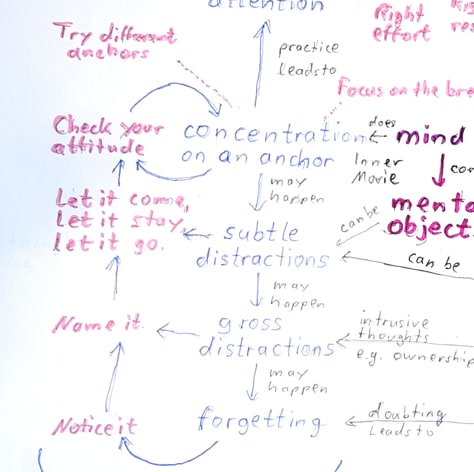 attention
Right
effort
Try different
anchors
practice
leads to
Focus on the
Check your
attitude
concentration
on an anchor
does
mind
Inner
Movie
may
happen
Let it come,
let it stay,
let it go.
subtle
distractions
can be
object
can be
may
happen
Name it
gross
distractions
intrusive
thoughts
e.g. ownership
may
happen
Notice it
forgetting
doubting
Leads to